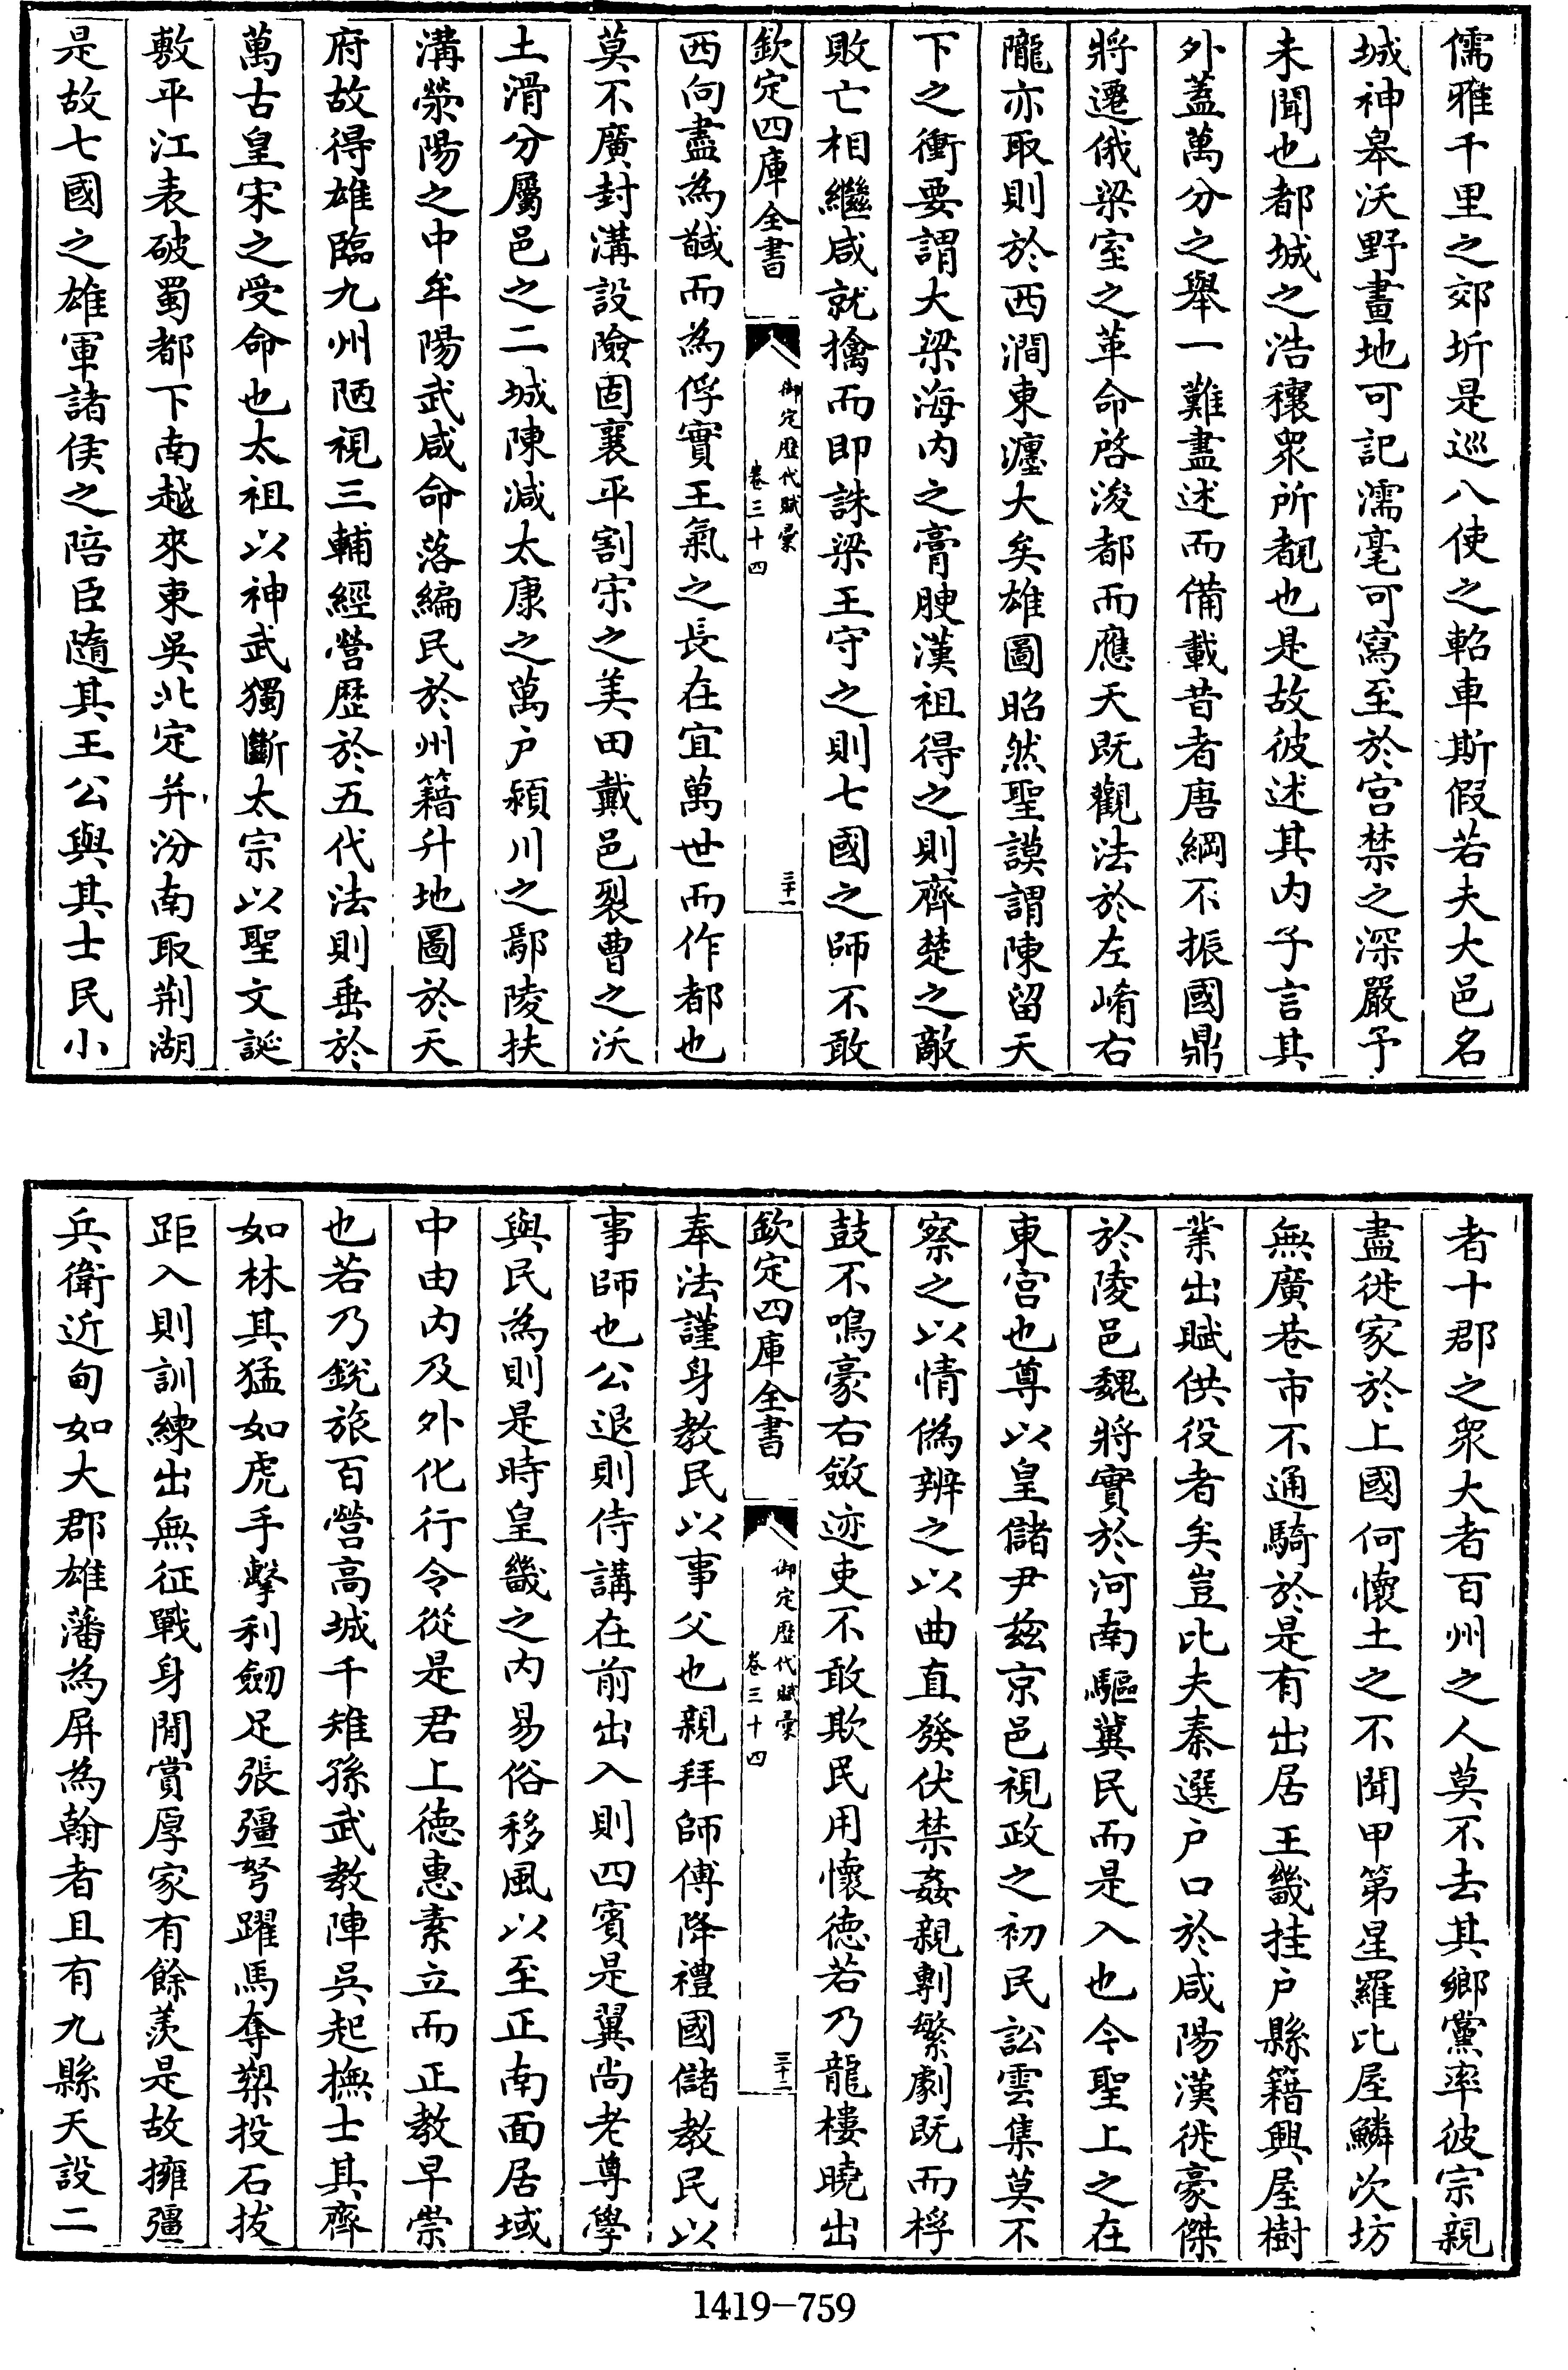 儒雅千里之郊圻是巡八使之軺車斯假若夫大邑名
城神皋沃野畫地可記濡毫可寫至於宫禁之深嚴予
未聞也都城之浩穰衆所覩也是故彼述其内子言其
外蓋萬分之舉一難盡述而備載昔者唐綱不振國鼎
將遷俄梁室之革命啓浚都而應天既觀法於左崤右
隴亦取則於西澗東瀍大矣雄圖昭然聖謨謂陳留天
下之衝要謂大梁海内之膏腴漢祖得之則齊楚之敵
敗亡相繼咸就擒而即誅梁王守之則七國之師不敢
欽定四庫全書
御定歷代賦彙
卷三十四
三十一
西向盡為馘而為俘實王氣之長在宜萬世而作都也
莫不廣封溝設險固襄平割宋之美田戴邑裂曹之沃
土滑分屬邑之二城陳減太康之萬户潁川之鄢陵扶
溝滎陽之中牟陽武咸命落編民於州籍升地圖於天
府故得雄臨九州陋視三輔經營歷於五代法則垂於
萬古皇宋之受命也太祖以神武獨斷太宗以聖文誕
敷平江表破蜀都下南越來東吳北定并汾南取荆湖
是故七國之雄軍諸侯之陪臣隨其王公與其士民小
者十郡之衆大者百州之人莫不去其鄉黨率彼宗親
盡徙家於上國何懷土之不聞甲第星羅比屋鱗次坊
無廣巷市不通騎於是有出居王畿挂户縣籍興屋樹
業出賦供役者矣豈比夫秦選户口於咸陽漢徙豪傑
於陵邑魏將實於河南驅冀民而是入也今聖上之在
東宫也尊以皇儲尹兹京邑視政之初民訟雲集莫不
察之以情偽辨之以曲直發伏禁姦親剸繁劇既而桴
鼓不鳴豪右斂迹吏不敢欺民用懷德若乃龍樓曉出
欽定四庫全書
御定歷代賦彙
卷三十四
三十二
奉法謹身教民以事父也親拜師傅降禮國儲教民以
事師也公退則侍講在前出入則四賓是翼尚老尊學
與民為則是時皇畿之内易俗移風以至正南面居域
中由内及外化行令從是君上德惠素立而正教早崇
也若乃銳旅百營高城千雉孫武教陣吳起撫士其齊
如林其猛如虎手擊利劒足張彊弩躍馬奪槊投石拔
距入則訓練出無征戰身閒賞厚家有餘羨是故擁彊
兵衛近甸如大郡雄藩為屏為翰者且有九縣天設二
1419-759